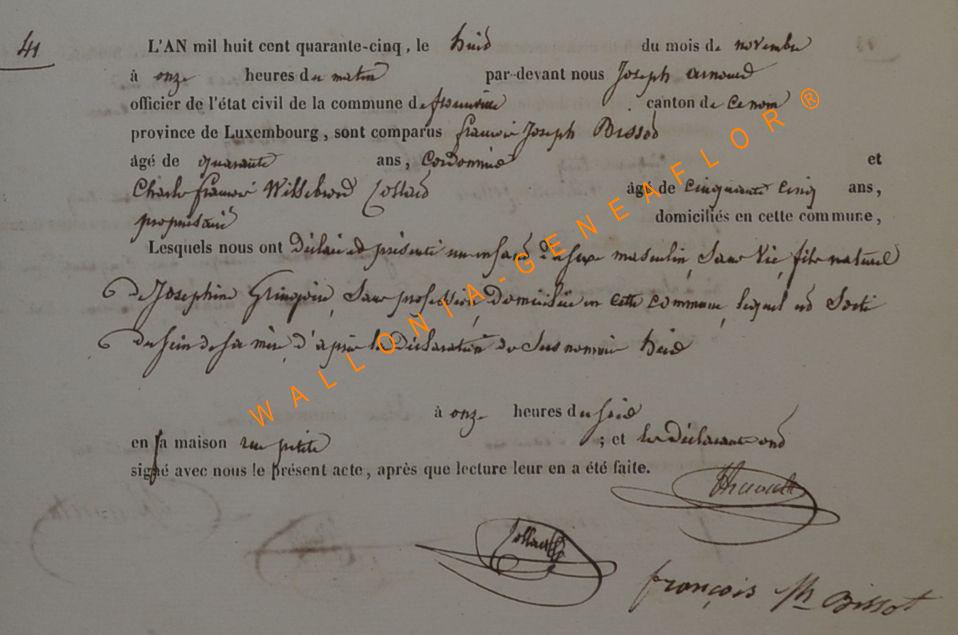 41
L'AN mil huit cent quarante-cinq, le huit du mois de novembre
à onze heures du matin par-devant nous Joseph Arnould
officier de l'état civil de la commune de canton de ce nom
province de Luxembourg, sont comparus françois Joseph Bissot
âgé de quarante ans, Cordonnier et
Charles françois Willebrord Collard âgé de cinquante cinq ans,
propriétaire domiciliés en cette commune,
Lesquels nous ont déclaré et présenté un enfant du sexe masculin, sans vie, fils naturel
de Josephine Gringoire, sans profession, domiciliée en cette commune, lequel est sorti
du sein de sa mère, d'après la déclaration des susnommés
à onze heures du soir
en sa maison rue petite ; et les déclarants ont
signé avec nous le présent acte, après que lecture leur en a été faite.
Collard
françois Jh Bissot
WALLONIA-GENEAFLOR®